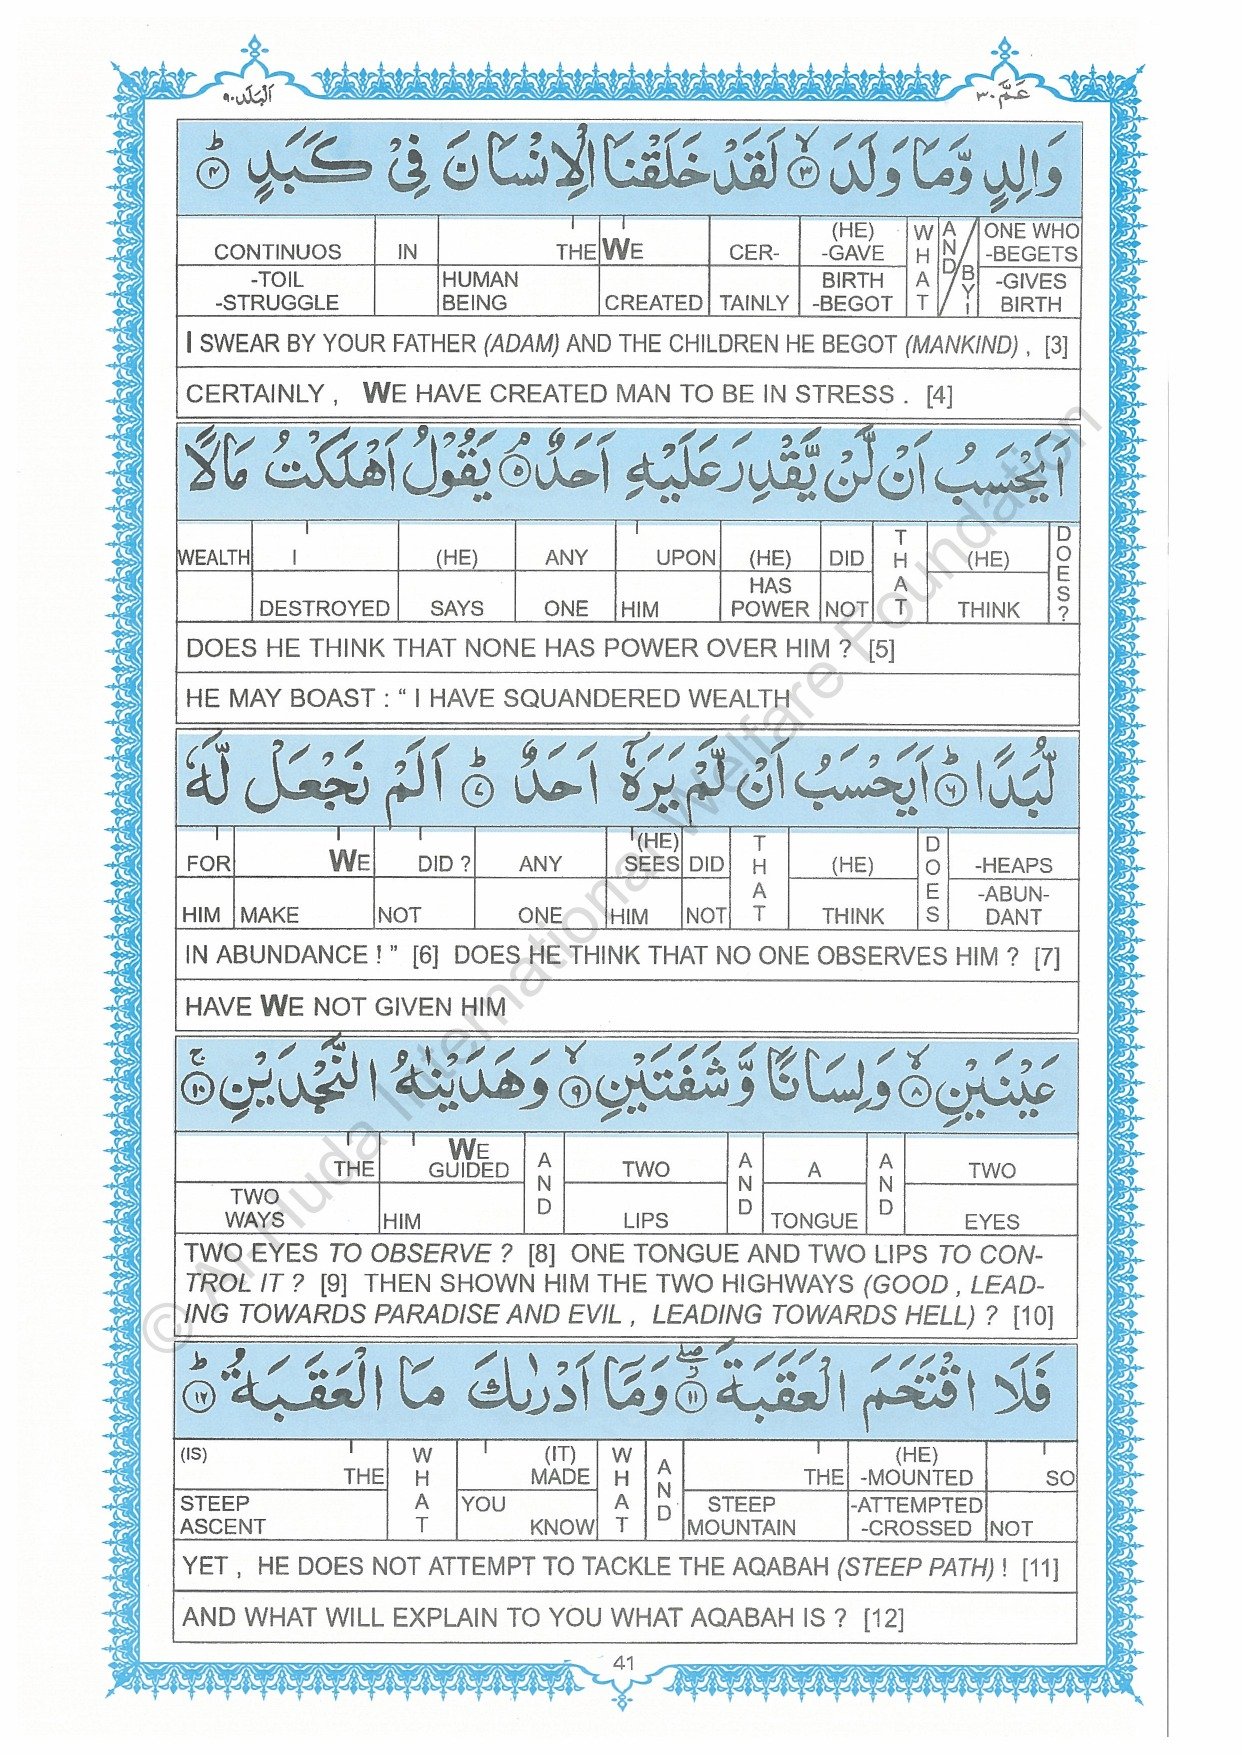 عَمَّ ٣٠
اَلْبَلَد ٩٠
وَالِدٍ وَّمَا وَلَدَ ۙ﴿٣﴾ لَقَدْ خَلَقْنَا الْاِنْسَانَ فِیْ كَبَدٍ ؕ﴿٤﴾
CONTINUOS IN THE WE CER- (HE) -GAVE WHAT AND/BY! ONE WHO -BEGETS
-TOIL -STRUGGLE HUMAN BEING CREATED TAINLY BIRTH -BEGOT -GIVES BIRTH
I SWEAR BY YOUR FATHER (ADAM) AND THE CHILDREN HE BEGOT (MANKIND) , [3]
CERTAINLY , WE HAVE CREATED MAN TO BE IN STRESS . [4]
اَیَحْسَبُ اَنْ لَّنْ یَّقْدِرَ عَلَیْهِ اَحَدٌ ۘ﴿٥﴾ یَقُوْلُ اَهْلَكْتُ مَالًا
WEALTH I (HE) ANY UPON (HE) DID THAT (HE) DOES?
DESTROYED SAYS ONE HIM HAS POWER NOT THINK
DOES HE THINK THAT NONE HAS POWER OVER HIM ? [5]
HE MAY BOAST : “ I HAVE SQUANDERED WEALTH
لُّبَدًا ؕ﴿٦﴾ اَیَحْسَبُ اَنْ لَّمْ یَرَهٗۤ اَحَدٌ ؕ﴿٧﴾ اَلَمْ نَجْعَلْ لَّهٗ
FOR WE DID ? ANY (HE) SEES DID THAT (HE) DOES -HEAPS
HIM MAKE NOT ONE HIM NOT THINK -ABUN- DANT
IN ABUNDANCE ! ” [6] DOES HE THINK THAT NO ONE OBSERVES HIM ? [7]
HAVE WE NOT GIVEN HIM
عَیْنَیْنِ ۙ﴿٨﴾ وَلِسَانًا وَّشَفَتَیْنِ ۙ﴿٩﴾ وَهَدَیْنٰهُ النَّجْدَیْنِ ۚ﴿١٠﴾
THE WE GUIDED AND TWO AND A AND TWO
TWO WAYS HIM LIPS TONGUE EYES
TWO EYES TO OBSERVE ? [8] ONE TONGUE AND TWO LIPS TO CON-
TROL IT ? [9] THEN SHOWN HIM THE TWO HIGHWAYS (GOOD , LEAD-
ING TOWARDS PARADISE AND EVIL , LEADING TOWARDS HELL) ? [10]
فَلَا اقْتَحَمَ الْعَقَبَةَ ۖ﴿١١﴾ وَمَاۤ اَدْرٰىكَ مَا الْعَقَبَةُ ؕ﴿١٢﴾
(IS) THE WHAT (IT) MADE WHAT AND THE (HE) -MOUNTED SO
STEEP ASCENT YOU KNOW STEEP MOUNTAIN -ATTEMPTED -CROSSED NOT
YET , HE DOES NOT ATTEMPT TO TACKLE THE AQABAH (STEEP PATH) ! [11]
AND WHAT WILL EXPLAIN TO YOU WHAT AQABAH IS ? [12]
41
© Al-Huda International Welfare Foundation